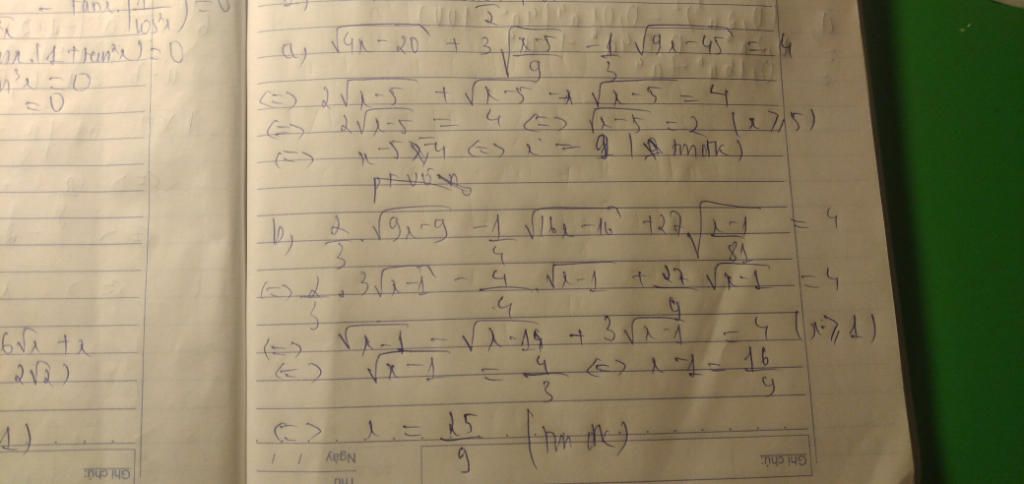 - tanx.(1/cos²x) = 0
nx.(1 + tan²x) = 0
n³x = 0
= 0
6√x + x
2√2)
1)
Ghi chú:
a, √(4x-20) + 3√((x-5)/9) - 1/3 √(9x-45) = 4
<=> 2√(x-5) + √(x-5) - √(x-5) = 4
<=> 2√(x-5) = 4 <=> √(x-5) = 2 (x ≥ 5)
<=> x-5 = 4 <=> x = 9 (tmđk)
b, 2/3 √(9x-9) - 1/4 √(16x-16) + 27√((x-1)/81) = 4
<=> 2/3 . 3√(x-1) - 4/4 . √(x-1) + 27/9 √(x-1) = 4
<=> √(x-1) - √(x-1) + 3√(x-1) = 4 (x ≥ 1)
<=> √(x-1) = 4/3 <=> x-1 = 16/9
<=> x = 25/9 (tm đk)
Ngày
Thứ
Ghi chú: